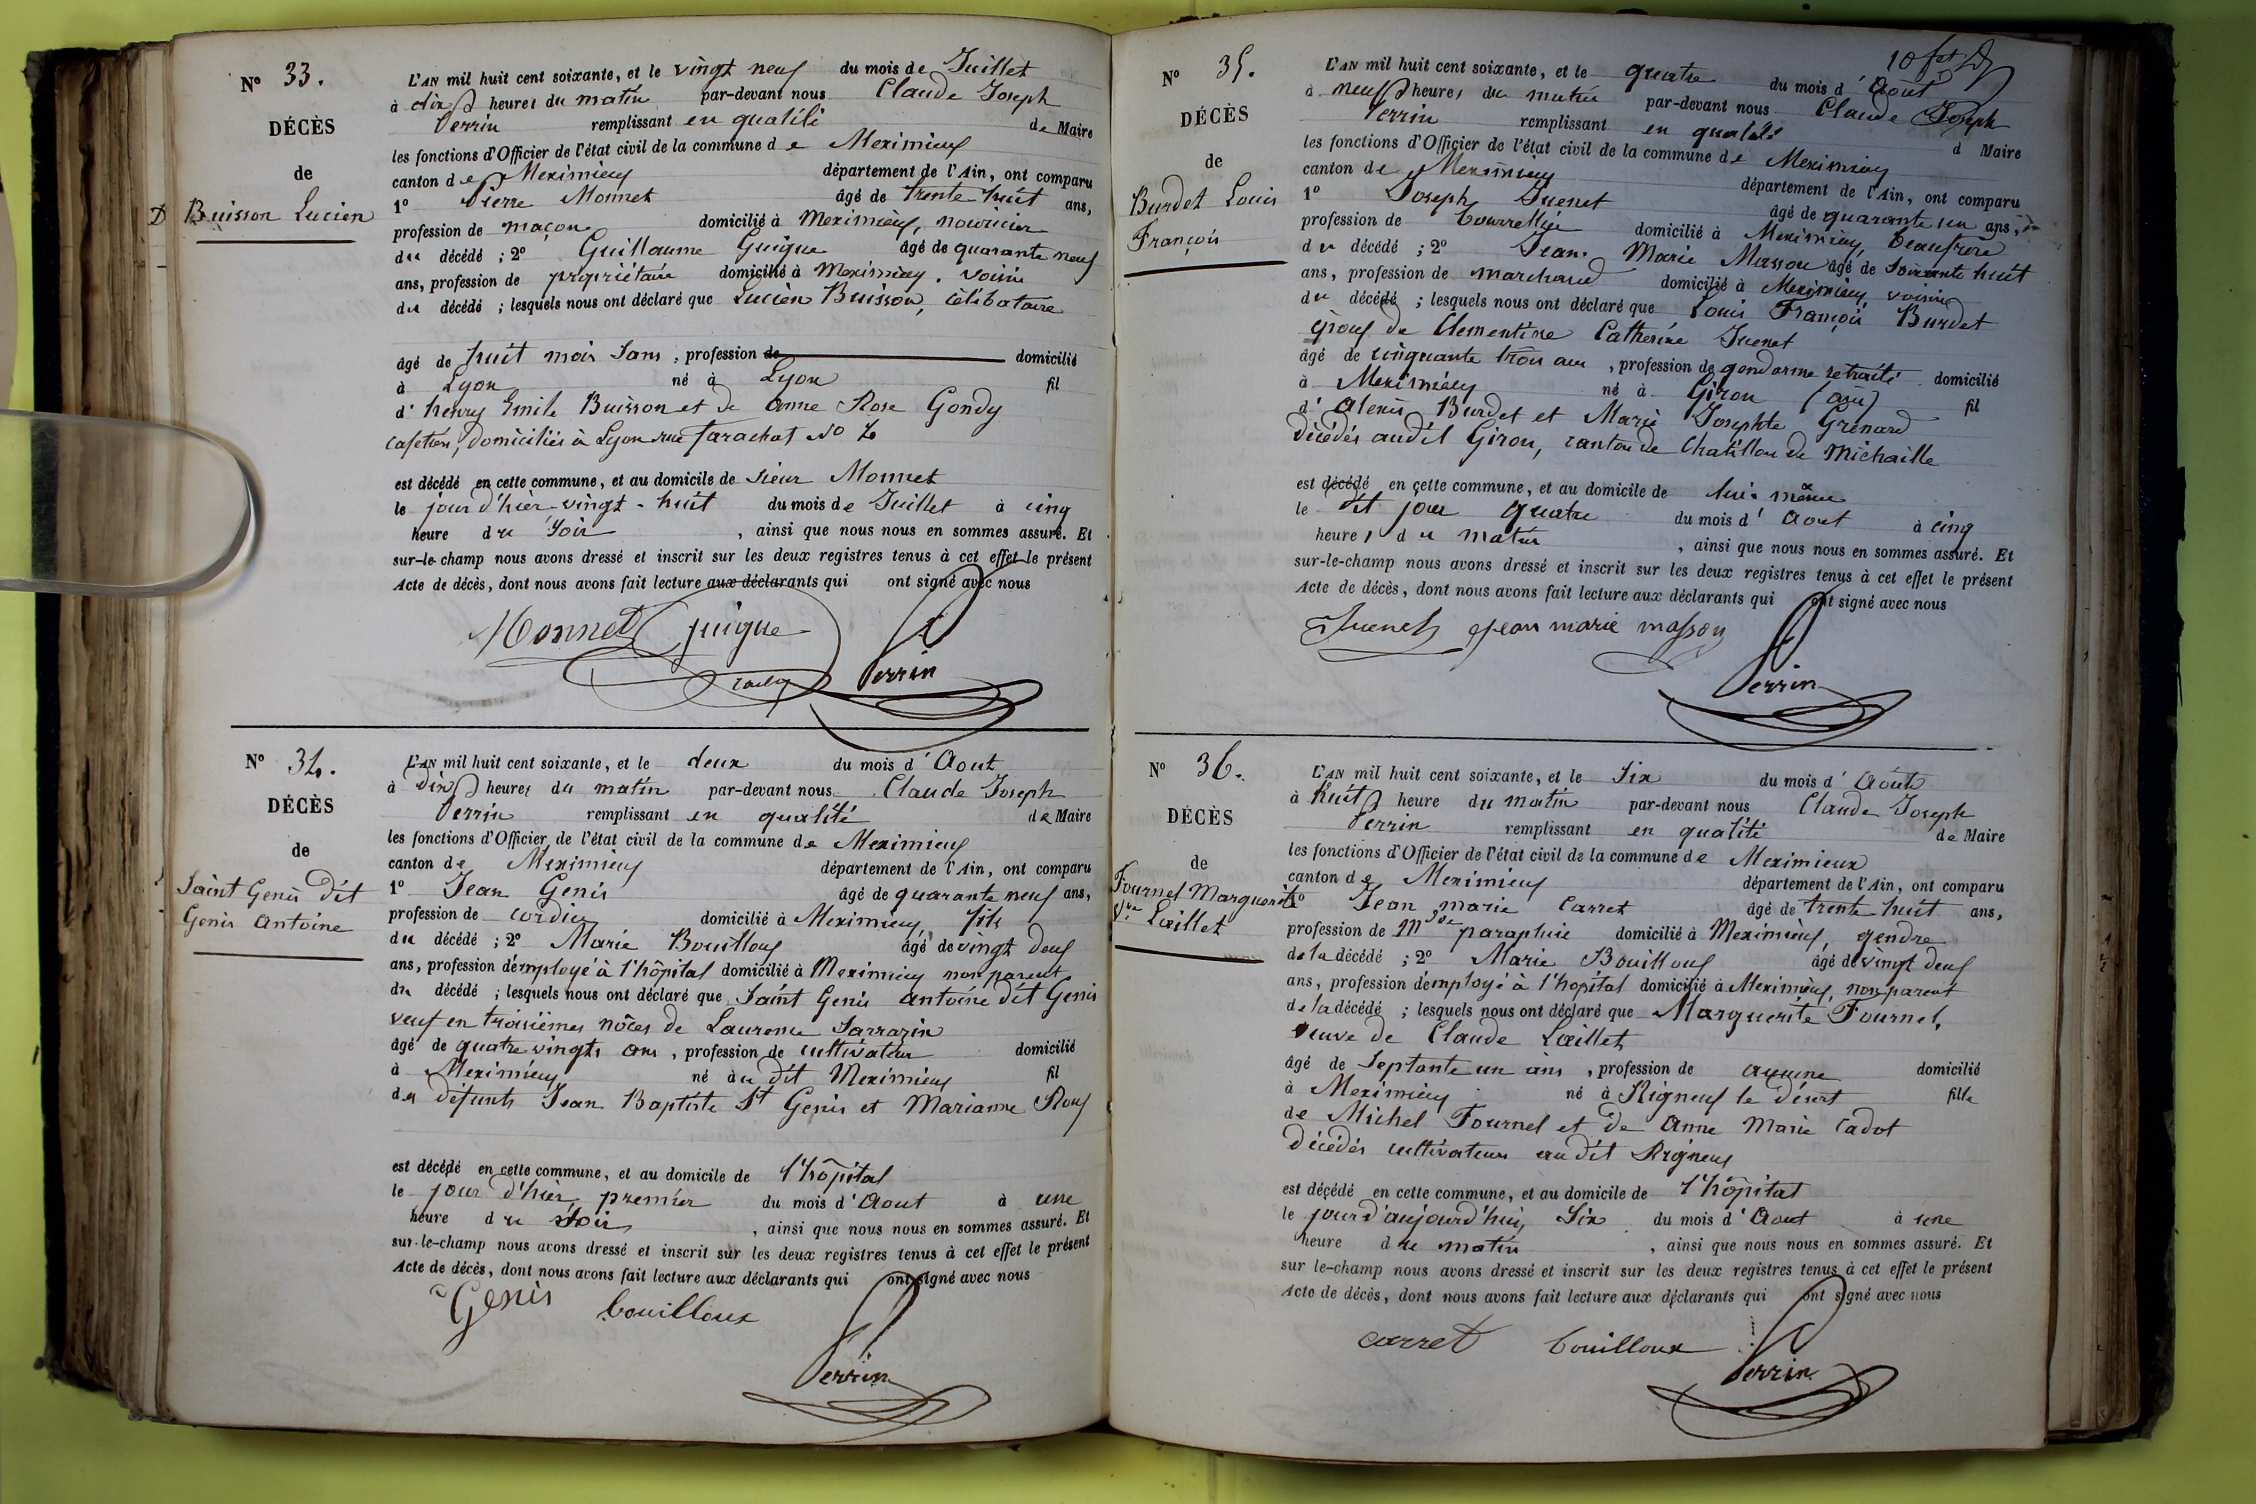 N° 33.
DÉCÈS
de
D Buisson Lucien
L'AN mil huit cent soixante, et le vingt neuf du mois de Juillet
à dix heures du matin par-devant nous Claude Joseph
Perrin remplissant en qualité de Maire
les fonctions d'Officier de l'état civil de la commune de Meximieux
canton de Meximieux département de l'Ain, ont comparu
1° Pierre Monnet âgé de trente huit ans,
profession de maçon domicilié à Meximieux, nouricier
du décédé ; 2° Guillaume Guigue âgé de quarante neuf
ans, profession de propriétaire domicilié à Meximieux. voisin
du décédé ; lesquels nous ont déclaré que Lucien Buisson, célibataire
âgé de huit mois sans, profession de domicilié
à Lyon né à Lyon fil
d' henry Emile Buisson et de Anne Rose Gondy
cafetiers, domiciliés à Lyon rue No
est décédé en cette commune, et au domicile de sieur Monnet
le jour d'hier vingt-huit du mois de Juillet à cinq
heure du soir, ainsi que nous nous en sommes assuré. Et
sur-le-champ nous avons dressé et inscrit sur les deux registres tenus à cet effet le présent
Acte de décès, dont nous avons fait lecture aux déclarants qui ont signé avec nous
Monnet Guigue
Perrin
N° 34.
DÉCÈS
de
Saint Genis dit
Genis Antoine
L'AN mil huit cent soixante, et le deux du mois d'Aout
à dix heures du matin par-devant nous Claude Joseph
Perrin remplissant en qualité de Maire
les fonctions d'Officier de l'état civil de la commune de Meximieux
canton de Meximieux département de l'Ain, ont comparu
1° Jean Genis âgé de quarante neuf ans,
profession de cordier domicilié à Meximieux, fils
du décédé ; 2° Marie Bouilloux âgé de vingt deux
ans, profession d'employé à l'hôpital domicilié à Meximieux non parent
du décédé ; lesquels nous ont déclaré que Saint Genis Antoine dit Genis
veuf en troisièmes nôces de Laurence Sarrazin
âgé de quatre vingts ans, profession de cultivateur domicilié
à Meximieux né au dit Meximieux fil
des défunts Jean Baptiste St Genis et Marianne Roux
est décédé en cette commune, et au domicile de l'hôpital
le jour d'hier premier du mois d'Aout à une
heure du soir, ainsi que nous nous en sommes assuré. Et
sur-le-champ nous avons dressé et inscrit sur les deux registres tenus à cet effet le présent
Acte de décès, dont nous avons fait lecture aux déclarants qui ont signé avec nous
Genis bouilloux
Perrin
N° 35.
DÉCÈS
de
Burdet Louis
François
L'AN mil huit cent soixante, et le quatre du mois d'Aout
à neuf heures du matin par-devant nous Claude Joseph
Perrin remplissant en qualité d Maire
les fonctions d'Officier de l'état civil de la commune de Meximieux
canton de Meximieux département de l'Ain, ont comparu
1° Joseph Juenet âgé de quarante un ans,
profession de bourrellier domicilié à Meximieux, beaufrère
du décédé ; 2° Jean Marie Masson âgé de soixante huit
ans, profession de marchand domicilié à Meximieux, voisin
du décédé ; lesquels nous ont déclaré que Louis François Burdet
époux de Clementine Catherine Juenet
âgé de cinquante trois ans, profession de gendarme retraité domicilié
à Meximieux né à Giron (ain) fil
d' Alexis Burdet et Marie Josephte Grenard
décédés audit Giron, canton de Chatillon de Michaille
est décédé en cette commune, et au domicile de lui-même
le dit jour quatre du mois d'Aout à cinq
heures du matin, ainsi que nous nous en sommes assuré. Et
sur-le-champ nous avons dressé et inscrit sur les deux registres tenus à cet effet le présent
Acte de décès, dont nous avons fait lecture aux déclarants qui ont signé avec nous
Juenet jean marie masson
Perrin
N° 36.
DÉCÈS
de
Fournel Marguerite
Vve Laillet
L'AN mil huit cent soixante, et le six du mois d'Août
à huit heure du matin par-devant nous Claude Joseph
Perrin remplissant en qualité de Maire
les fonctions d'Officier de l'état civil de la commune de Meximieux
canton de Meximieux département de l'Ain, ont comparu
1° Jean marie Carret âgé de trente huit ans,
profession de Md de parapluie domicilié à Meximieux, gendre
de la décédé ; 2° Marie Bouilloux âgé de vingt deux
ans, profession d'employé à l'hopital domicilié à Meximieux, non parent
de la décédé ; lesquels nous ont déclaré que Marguerite Fournel,
veuve de Claude Laillet
âgé de septante un ans, profession de aucune domicilié
à Meximieux né à Rigneux le désert fille
de Michel Fournel et de Anne Marie Cadot
décédés cultivateurs au dit Rigneux
est décédé en cette commune, et au domicile de l'hôpital
le jour d'aujourd'hui six du mois d'Aout à une
heure du matin, ainsi que nous nous en sommes assuré. Et
sur le-champ nous avons dressé et inscrit sur les deux registres tenus à cet effet le présent
Acte de décès, dont nous avons fait lecture aux déclarants qui ont signé avec nous
carret bouilloux
Perrin